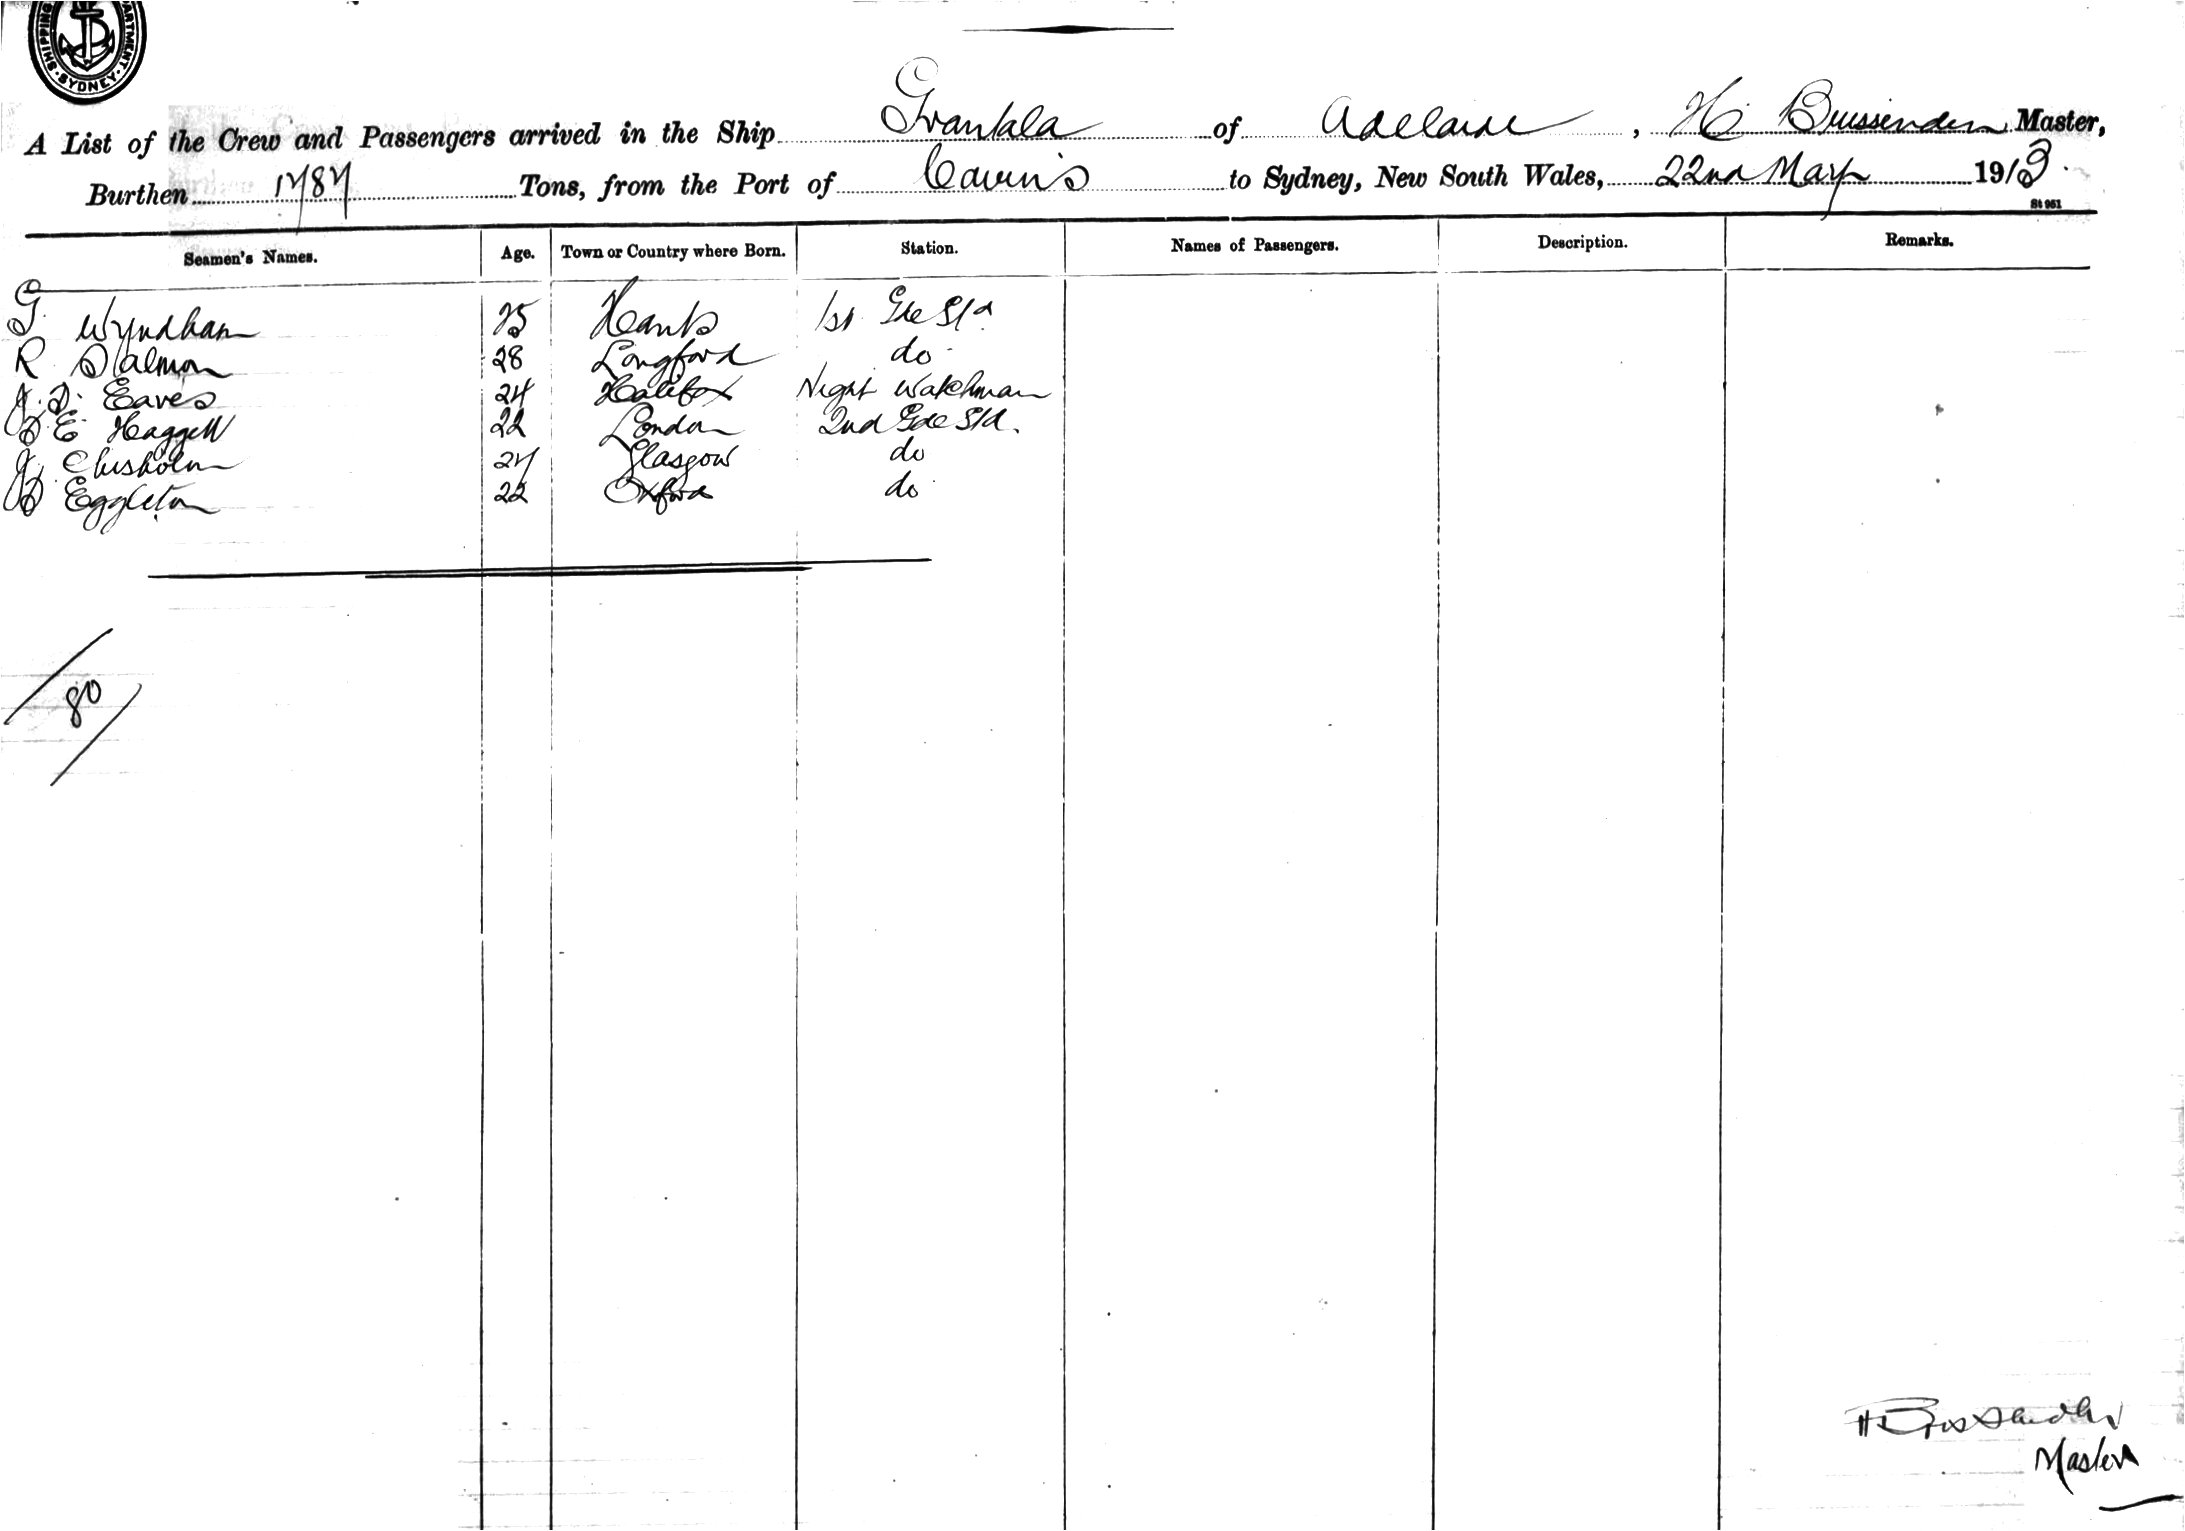 SHIPPING DEPARTMENT SYDNEY
A List of the Crew and Passengers arrived in the Ship Grantala of Adelaide, H. Brissenden Master,
Burthen 1787 Tons, from the Port of Cairns to Sydney, New South Wales, 22nd May 1913.
St 961
Seamen's Names. Age. Town or Country where Born. Station. Names of Passengers. Description. Remarks.
G. Wyndham 25 Hants 1st Gde Std
R Salmon 28 Longford do
J. D. Eaves 24 Halifax Night Watchman
B E Haggett 22 London 2nd Gde Std.
J. Chisholm 27 Glasgow do
B Eggleton 22 Oxford do
80
H Brissenden
Master